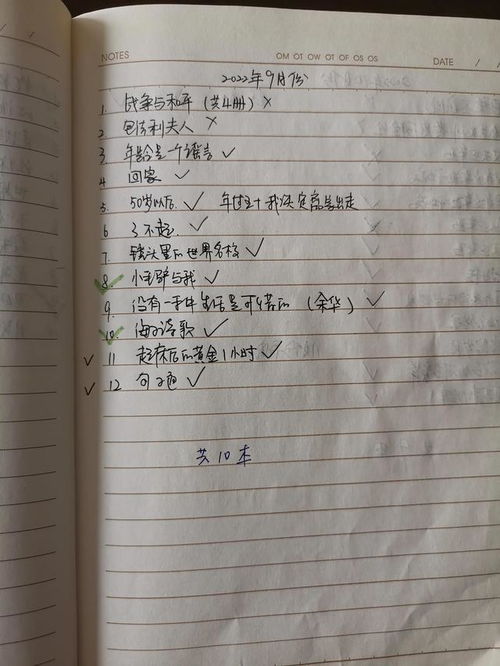 NOTES OM OT OW OT OF OS OS DATE / /
2022年9月份
1. 战争与和平（共4册）×
2 包法利夫人 ×
3 年龄是一个谎言 ✓
4 回家 ✓
5. 50岁以后 ✓ 年过五十我决定离家出走
6 了不起 ✓
7. 镜头里的世界名校 ✓
8. 小毛驴与我 ✓
9. 没有一种生活是可惜的（余华）✓
10. 海子诗歌 ✓
✓ 11 起床后的黄金1小时 ✓
✓ 12 ✓
共10本